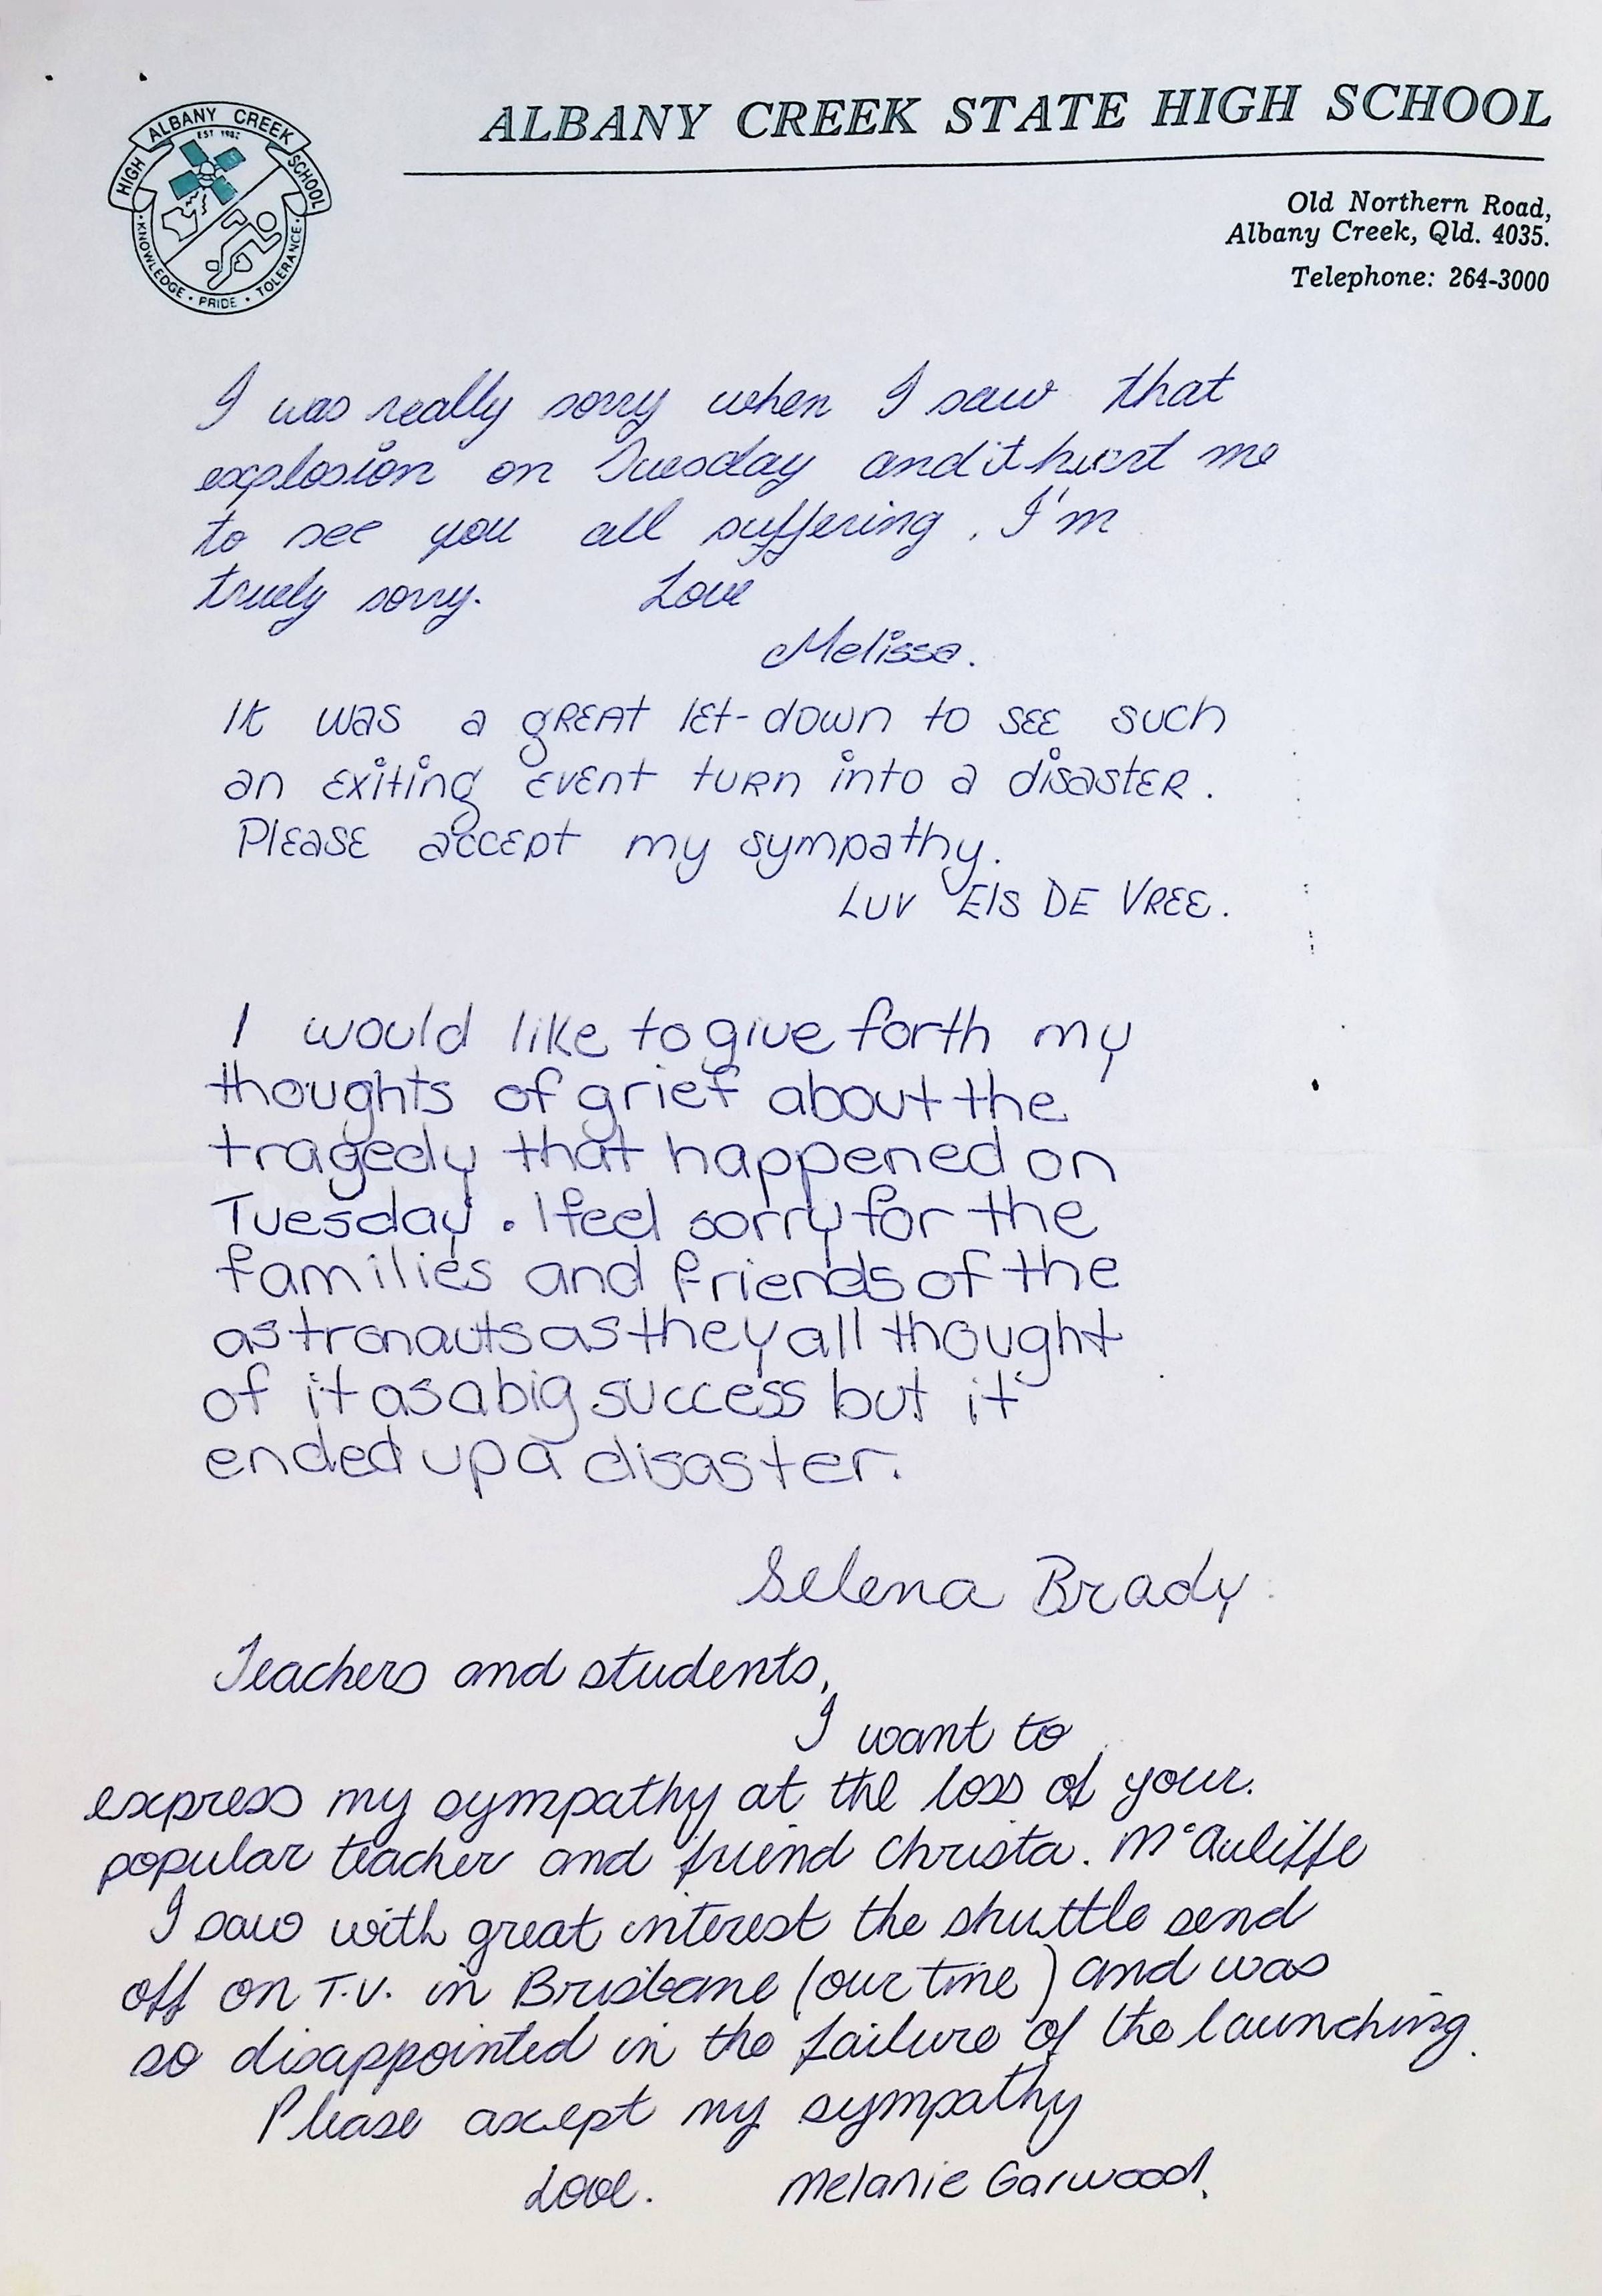 ALBANY CREEK STATE HIGH SCHOOL
HIGH ALBANY CREEK SCHOOL
EST
KNOWLEDGE · PRIDE · TOLERANCE
Old Northern Road,
Albany Creek, Qld. 4035.
Telephone: 264-3000
I was really sorry when I saw that
explosion on Tuesday and it hurt me
to see you all suffering. I'm
truely sorry. Love
Melissa.
It was a great let-down to see such
an exiting event turn into a disaster.
Please accept my sympathy.
LUV ELS DE VREE.
I would like to give forth my
thoughts of grief about the
tragedy that happened on
Tuesday. I feel sorry for the
families and friends of the
astronauts as they all thought
of it as a big success but it
ended up a disaster.
Selena Brady.
Teachers and students,
I want to
express my sympathy at the loss of your.
popular teacher and friend Christa. McAuliffe
I saw with great interest the shuttle send
off on T.V. in Brisbane (our time) and was
so disappointed in the failure of the launching.
Please axcept my sympathy
Love. Melanie Garwood.